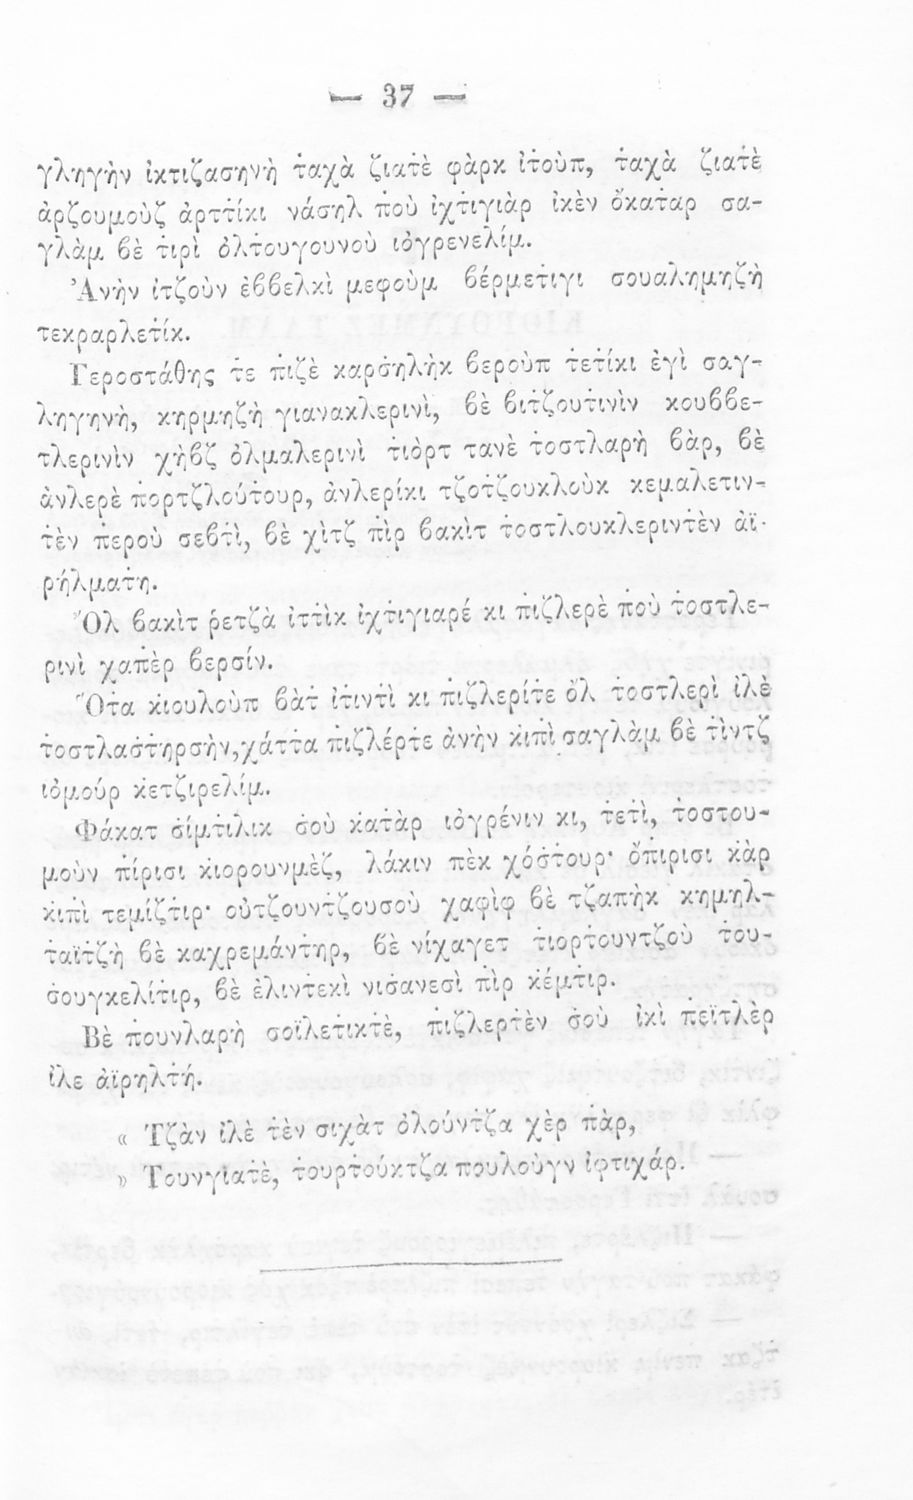 — 37 —
γληγὴν ἰκτιζασηνὴ ṫαχὰ ζιατὲ φὰρκ ἰτοὺπ, ṫαχὰ ζιατὲ
ἀρζουμοὺζ ἀρττίκι νάσηλ π̇οὺ ἰχτιγιὰρ ἰκὲν ὄκαταρ σα-
γλὰμ βὲ τιρὶ ὀλτουγουνοὺ ἰογρενελίμ.
Ἀνὴν ἰτζοὺν ἐββελκὶ μεφοὺμ βέρμετιγι σουαλημηζὴ
τεκραρλετίκ.
Γεροστάθης τε π̇ιζὲ καρσηλὴκ βεροὺπ τετίκι ἐγὶ σαγ-
ληγηνὴ, κηρμηζὴ γιανακλερινὶ, βὲ βιτζουτινὶν κουββε-
τλερινὶν χὴβζ ὀλμαλερινὶ τιὸρτ τανὲ τοστλαρὴ βὰρ, βὲ
ἀνλερὲ π̇ορτζλούτουρ, ἀνλερίκι τζοτζουκλοὺκ κεμαλετιν-
τὲν π̇εροὺ σεβτὶ, βὲ χὶτζ π̇ὶρ βακὶτ τοστλουκλεριντὲν ἀϊ-
ρήλματη.
Ὂλ βακὶτ ῥετζὰ ἰττὶκ ἰχτιγιαρέ κι π̇ιζλερὲ π̇οὺ τοστλε-
ρινὶ χαπ̇ὲρ βερσίν.
Ὅτα κιουλοὺπ βὰτ ἰτιντὶ κι π̇ιζλερίτε ὂλ τοστλερὶ ἰλὲ
τοστλαστηρσὴν, χάττα π̇ιζλέρτε ἀνὴν κιπ̇ὶ σαγλὰμ βὲ τὶντζ
ἰομούρ κετζιρελίμ.
Φάκατ σίμτιλικ σοὺ κατὰρ ἰογρένιν κι, τετὶ, τοστου-
μοὺν π̇ίρισι κιορουνμὲζ, λάκιν π̇ὲκ χόστουρ· ὄπιρισι κὰρ
κιπ̇ὶ τεμίζτιρ· οὐτζουντζουσοὺ χαφὶφ βὲ τζαπὴκ κημηλ-
ταϊτζὴ βὲ καχρεμάντηρ, βὲ νίχαγετ τιορτουντζοὺ του-
σουγκελίτιρ, βὲ ἐλιντεκὶ νισανεσὶ π̇ὶρ κέμτιρ.
Βὲ π̇ουνλαρὴ σοϊλετικτὲ, π̇ιζλερτὲν σοὺ ἰκὶ π̇εϊτλὲρ
ἰλε ἀϊρηλτή.
« Τζὰν ἰλὲ τὲν σιχὰτ ὀλούντζα χὲρ π̇ὰρ,
» Τουνγιατὲ, τουρτούκτζα π̇ουλοὺγν ἰφτιχάρ.